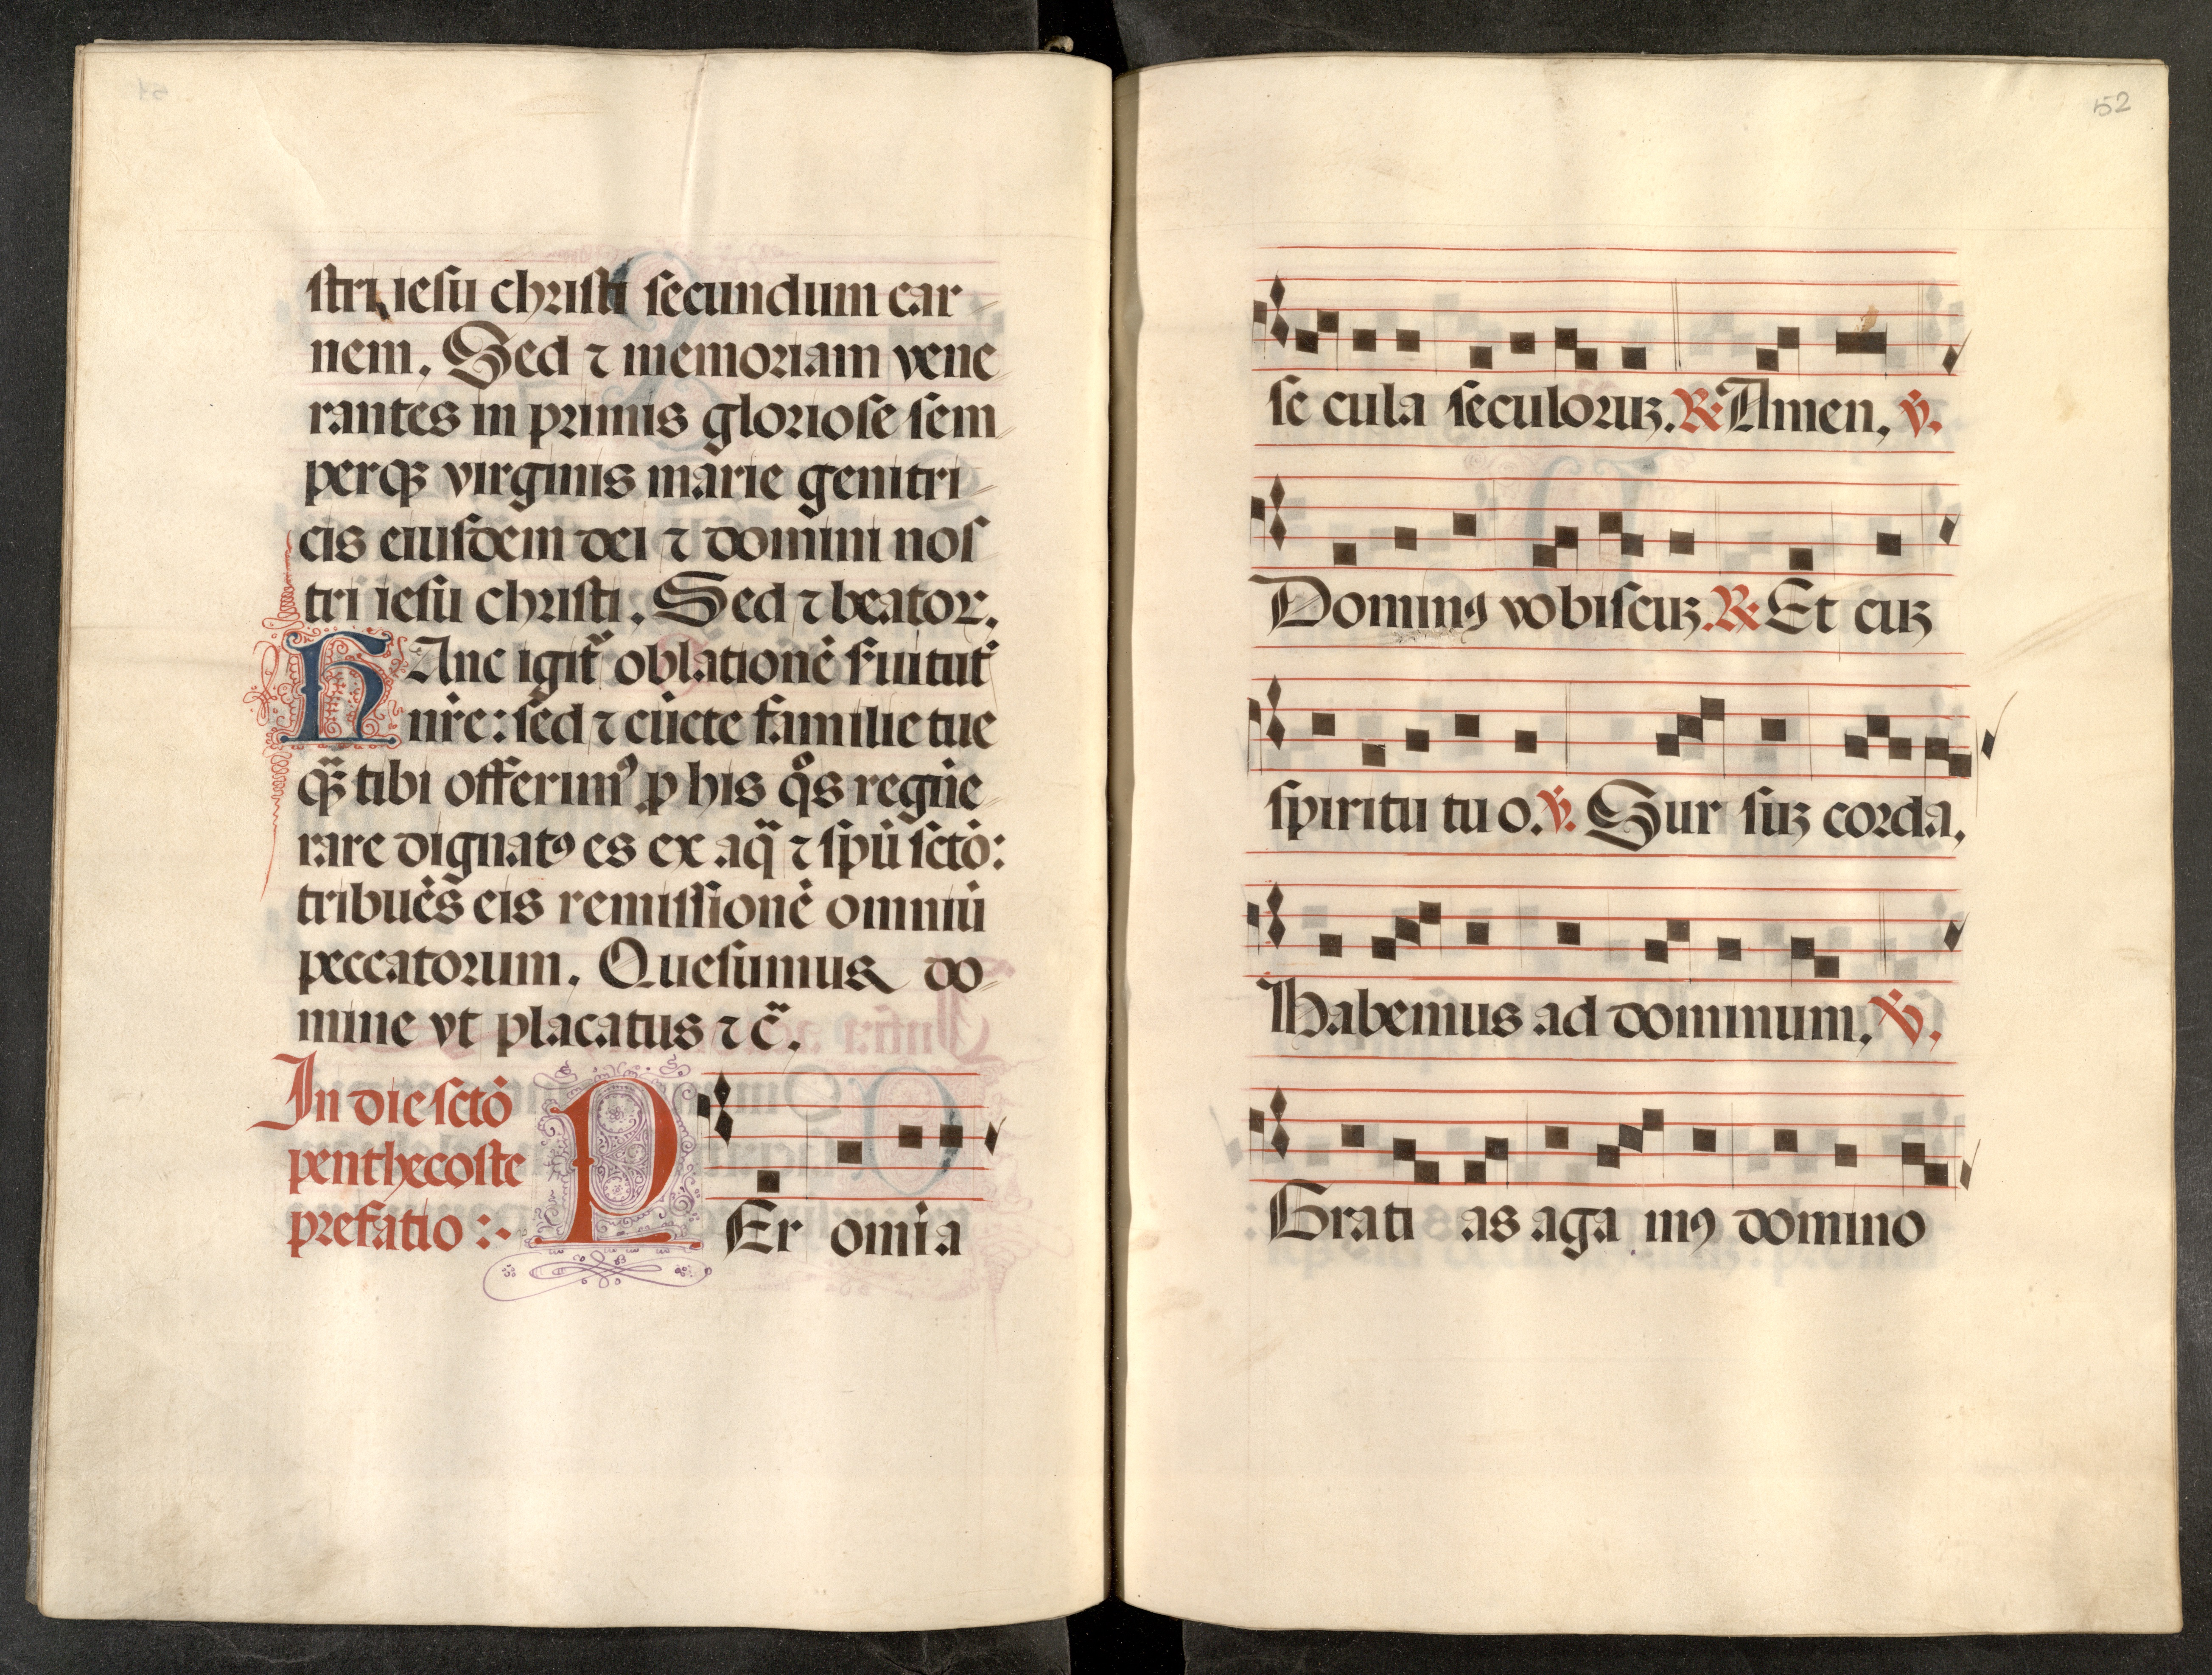 stri iesu christi secundum car
nem. Sed ⁊ memoriam vene
rantes in primis gloriose sem
perqꝫ virginis marie genitri
cis eiusdem dei ⁊ domini nos
tri iesu christi. Sed ⁊ beator.
HAnc igit̃ oblationē ſuitut̃
nr̄e: sed ⁊ cūcte familie tue
qꝫ̃ tibi offerimꝰ ꝓ his qͦs regūe
rare dignatꝰ es ex aq̃ ⁊ spū sctō:
tribuēs eis remissionē omniū
peccatorum. Quesumus do
mine vt placatus ⁊ c̃.
In die sctō
penthecoste
prefatio :·
PEr omia
52
se cula seculoruꝫ. ℟ Amen. ℣.
Dominꝰ vobiscuꝫ. ℟ Et cuꝫ
spiritu tu o. ℣. Sur suꝫ corda.
Habemus ad dominum. ℣.
Grati as aga mꝰ domino